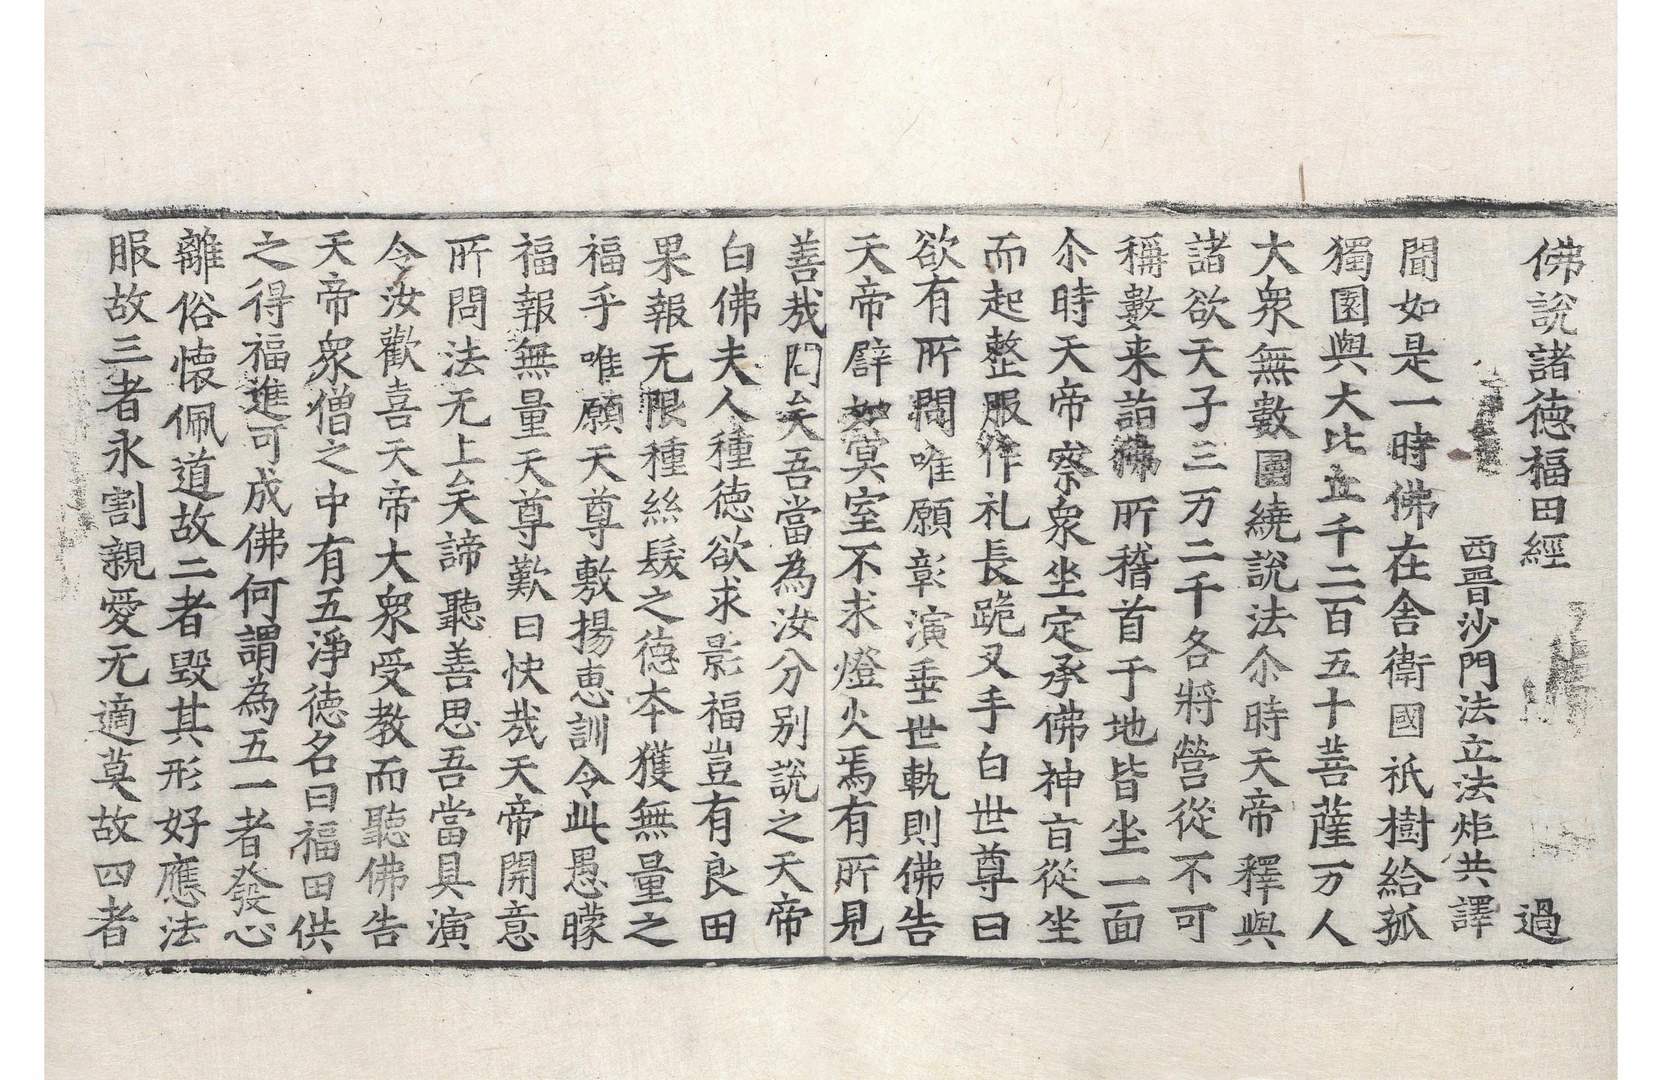 佛說諸德福田經 過
西晉沙門法立法炬共譯
聞如是一時佛在舍衛國祇樹給孤
獨園與大比丘千二百五十菩薩万人
大衆無數圍繞說法尒時天帝釋與
諸欲天子三万二千各將營從不可
稱數来詣佛所稽首于地皆坐一面
尒時天帝察衆坐定承佛神旨從坐
而起整服作礼長跪叉手白世尊曰
欲有所問唯願彰演垂世軌則佛告
天帝譬如冥室不求燈火焉有所見
善哉問矣吾當為汝分别說之天帝
白佛夫人種德欲求影福豈有良田
果報无限種絲髮之德夲獲無量之
福乎唯願天尊敷揚惠訓令此愚矇
福報無量天尊歎曰快哉天帝開意
所問法无上矣諦聽善思吾當具演
令汝歡喜天帝大衆受教而聽佛告
天帝衆僧之中有五淨德名曰福田供
之得福進可成佛何謂為五一者發心
離俗懷佩道故二者毀其形好應法
服故三者永割親愛无適莫故四者